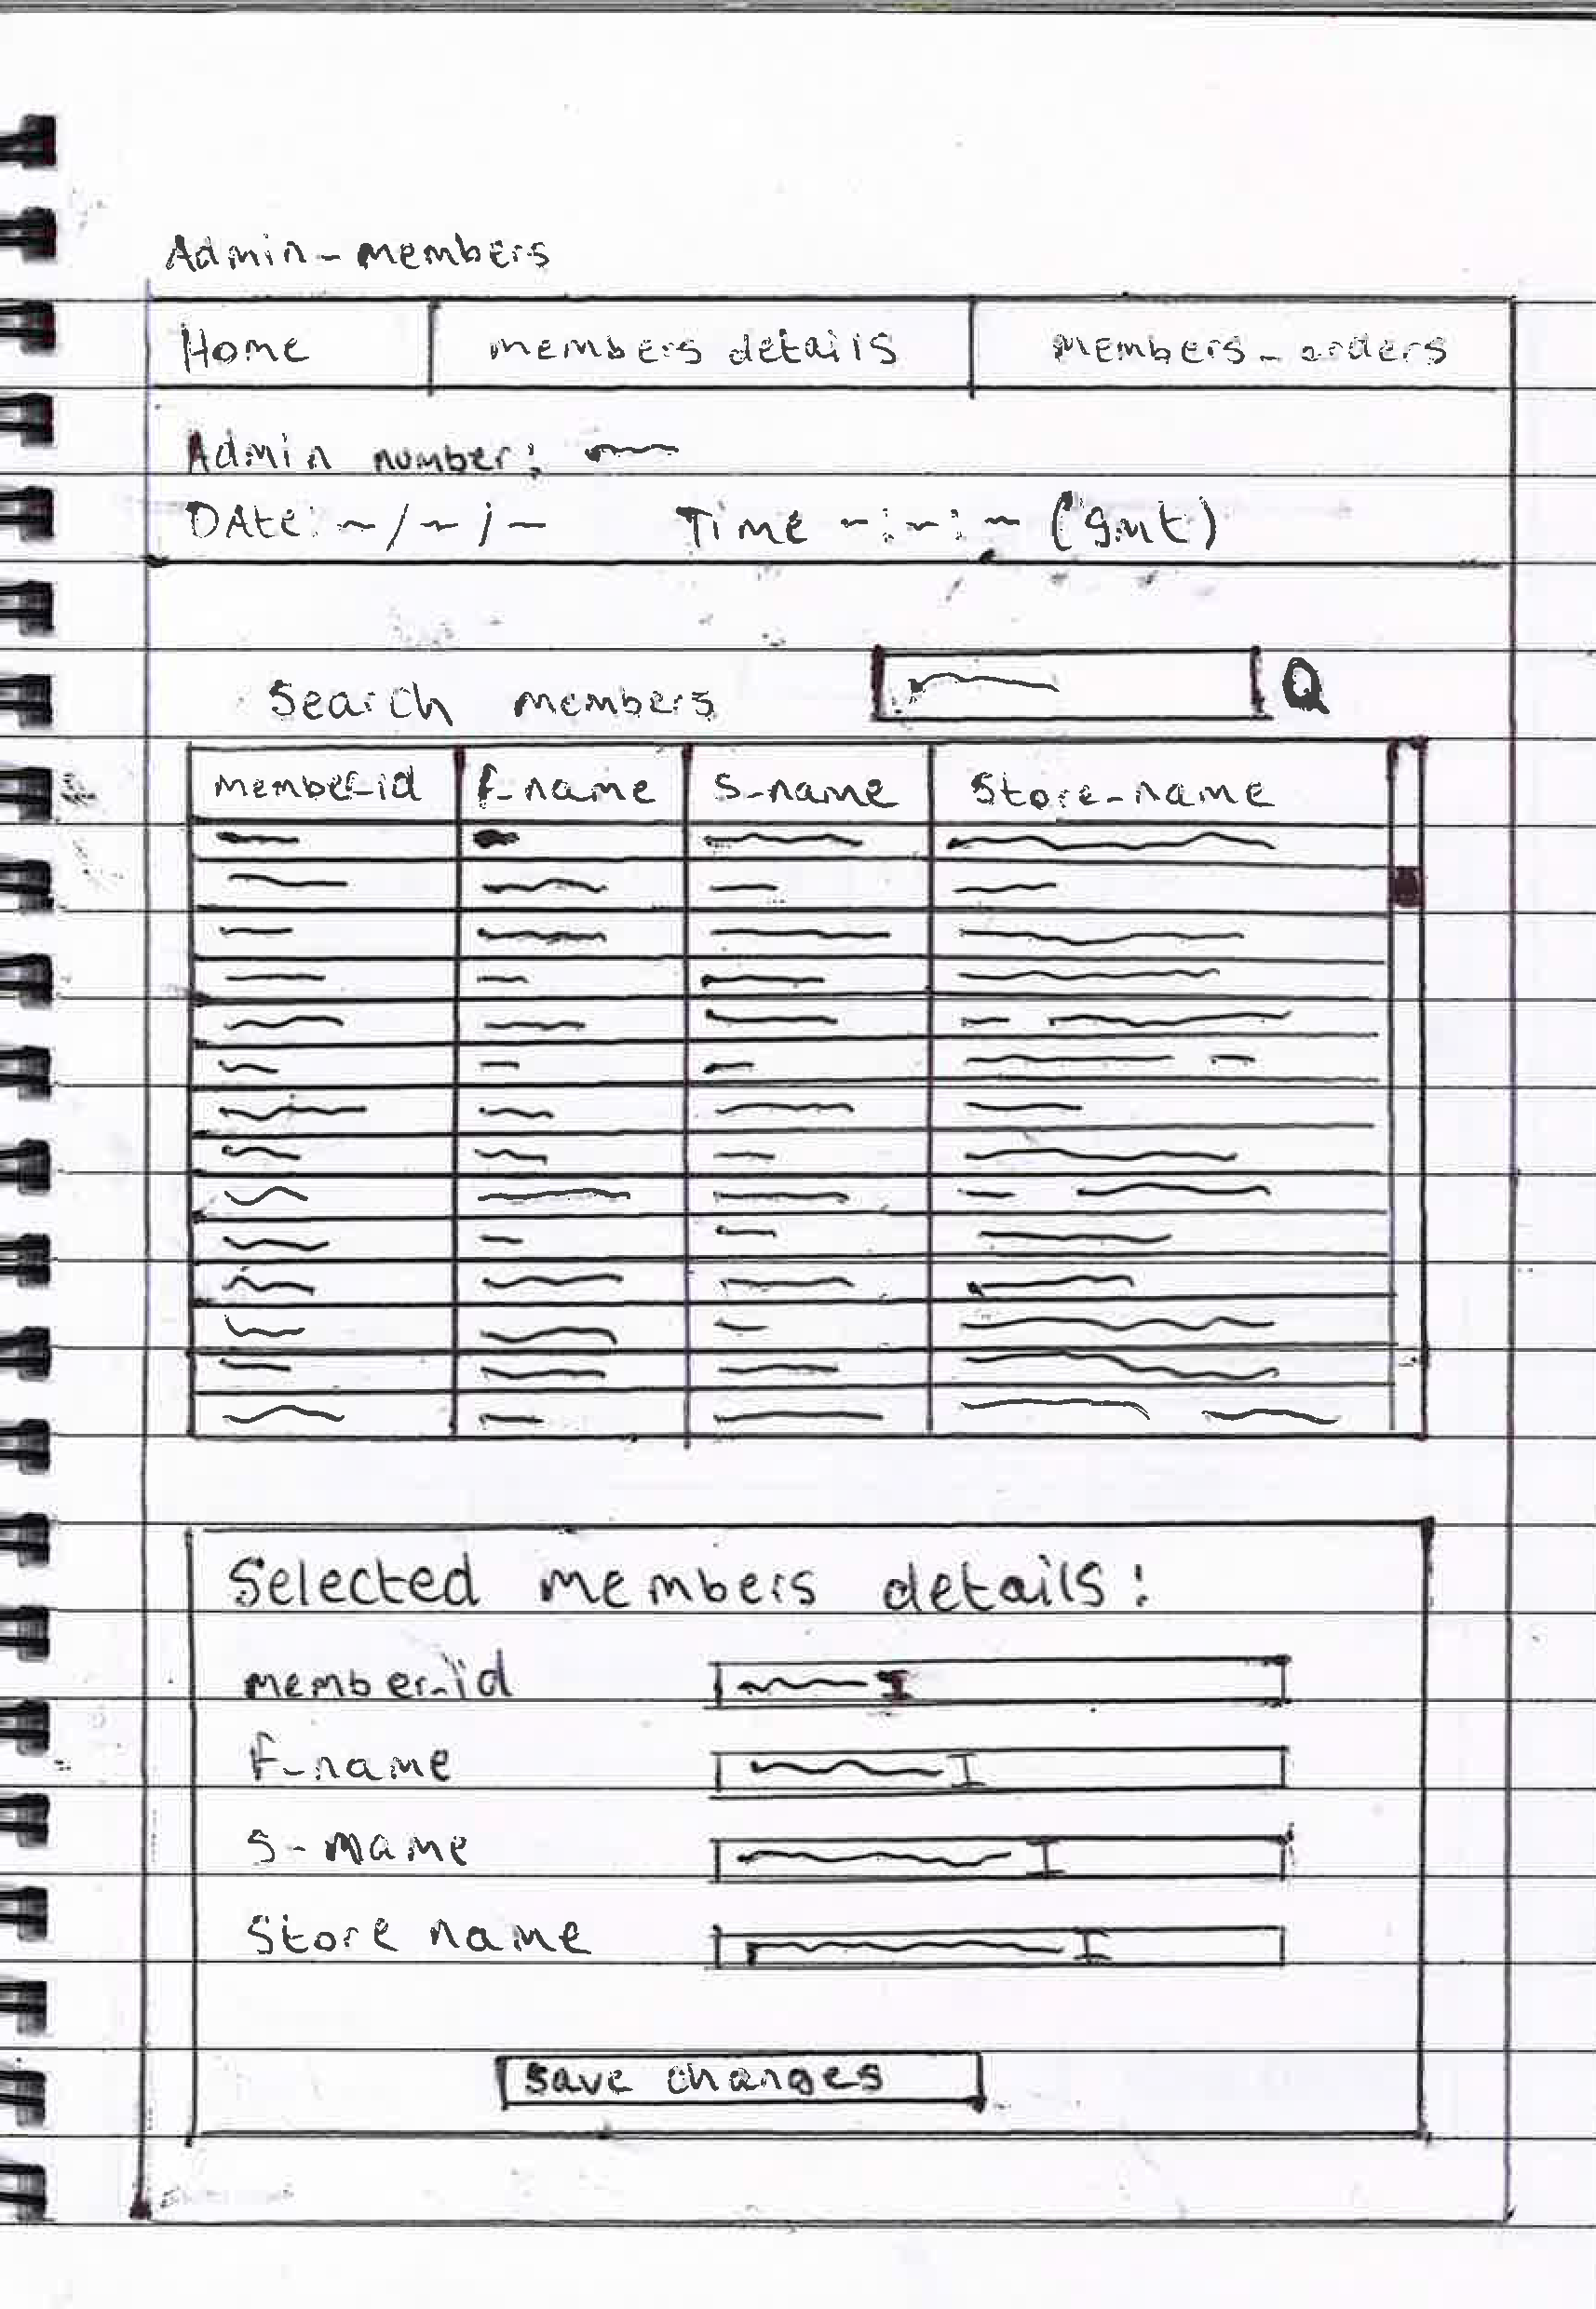 Admin-members
Home members details members-orders
Admin number:
DAte: ~/~/~ Time ~:~:~ (gmt)
Search members
member-id f-name s-name Store-name
Selected members details:
member-id
f-name
s-name
Store name
save changes